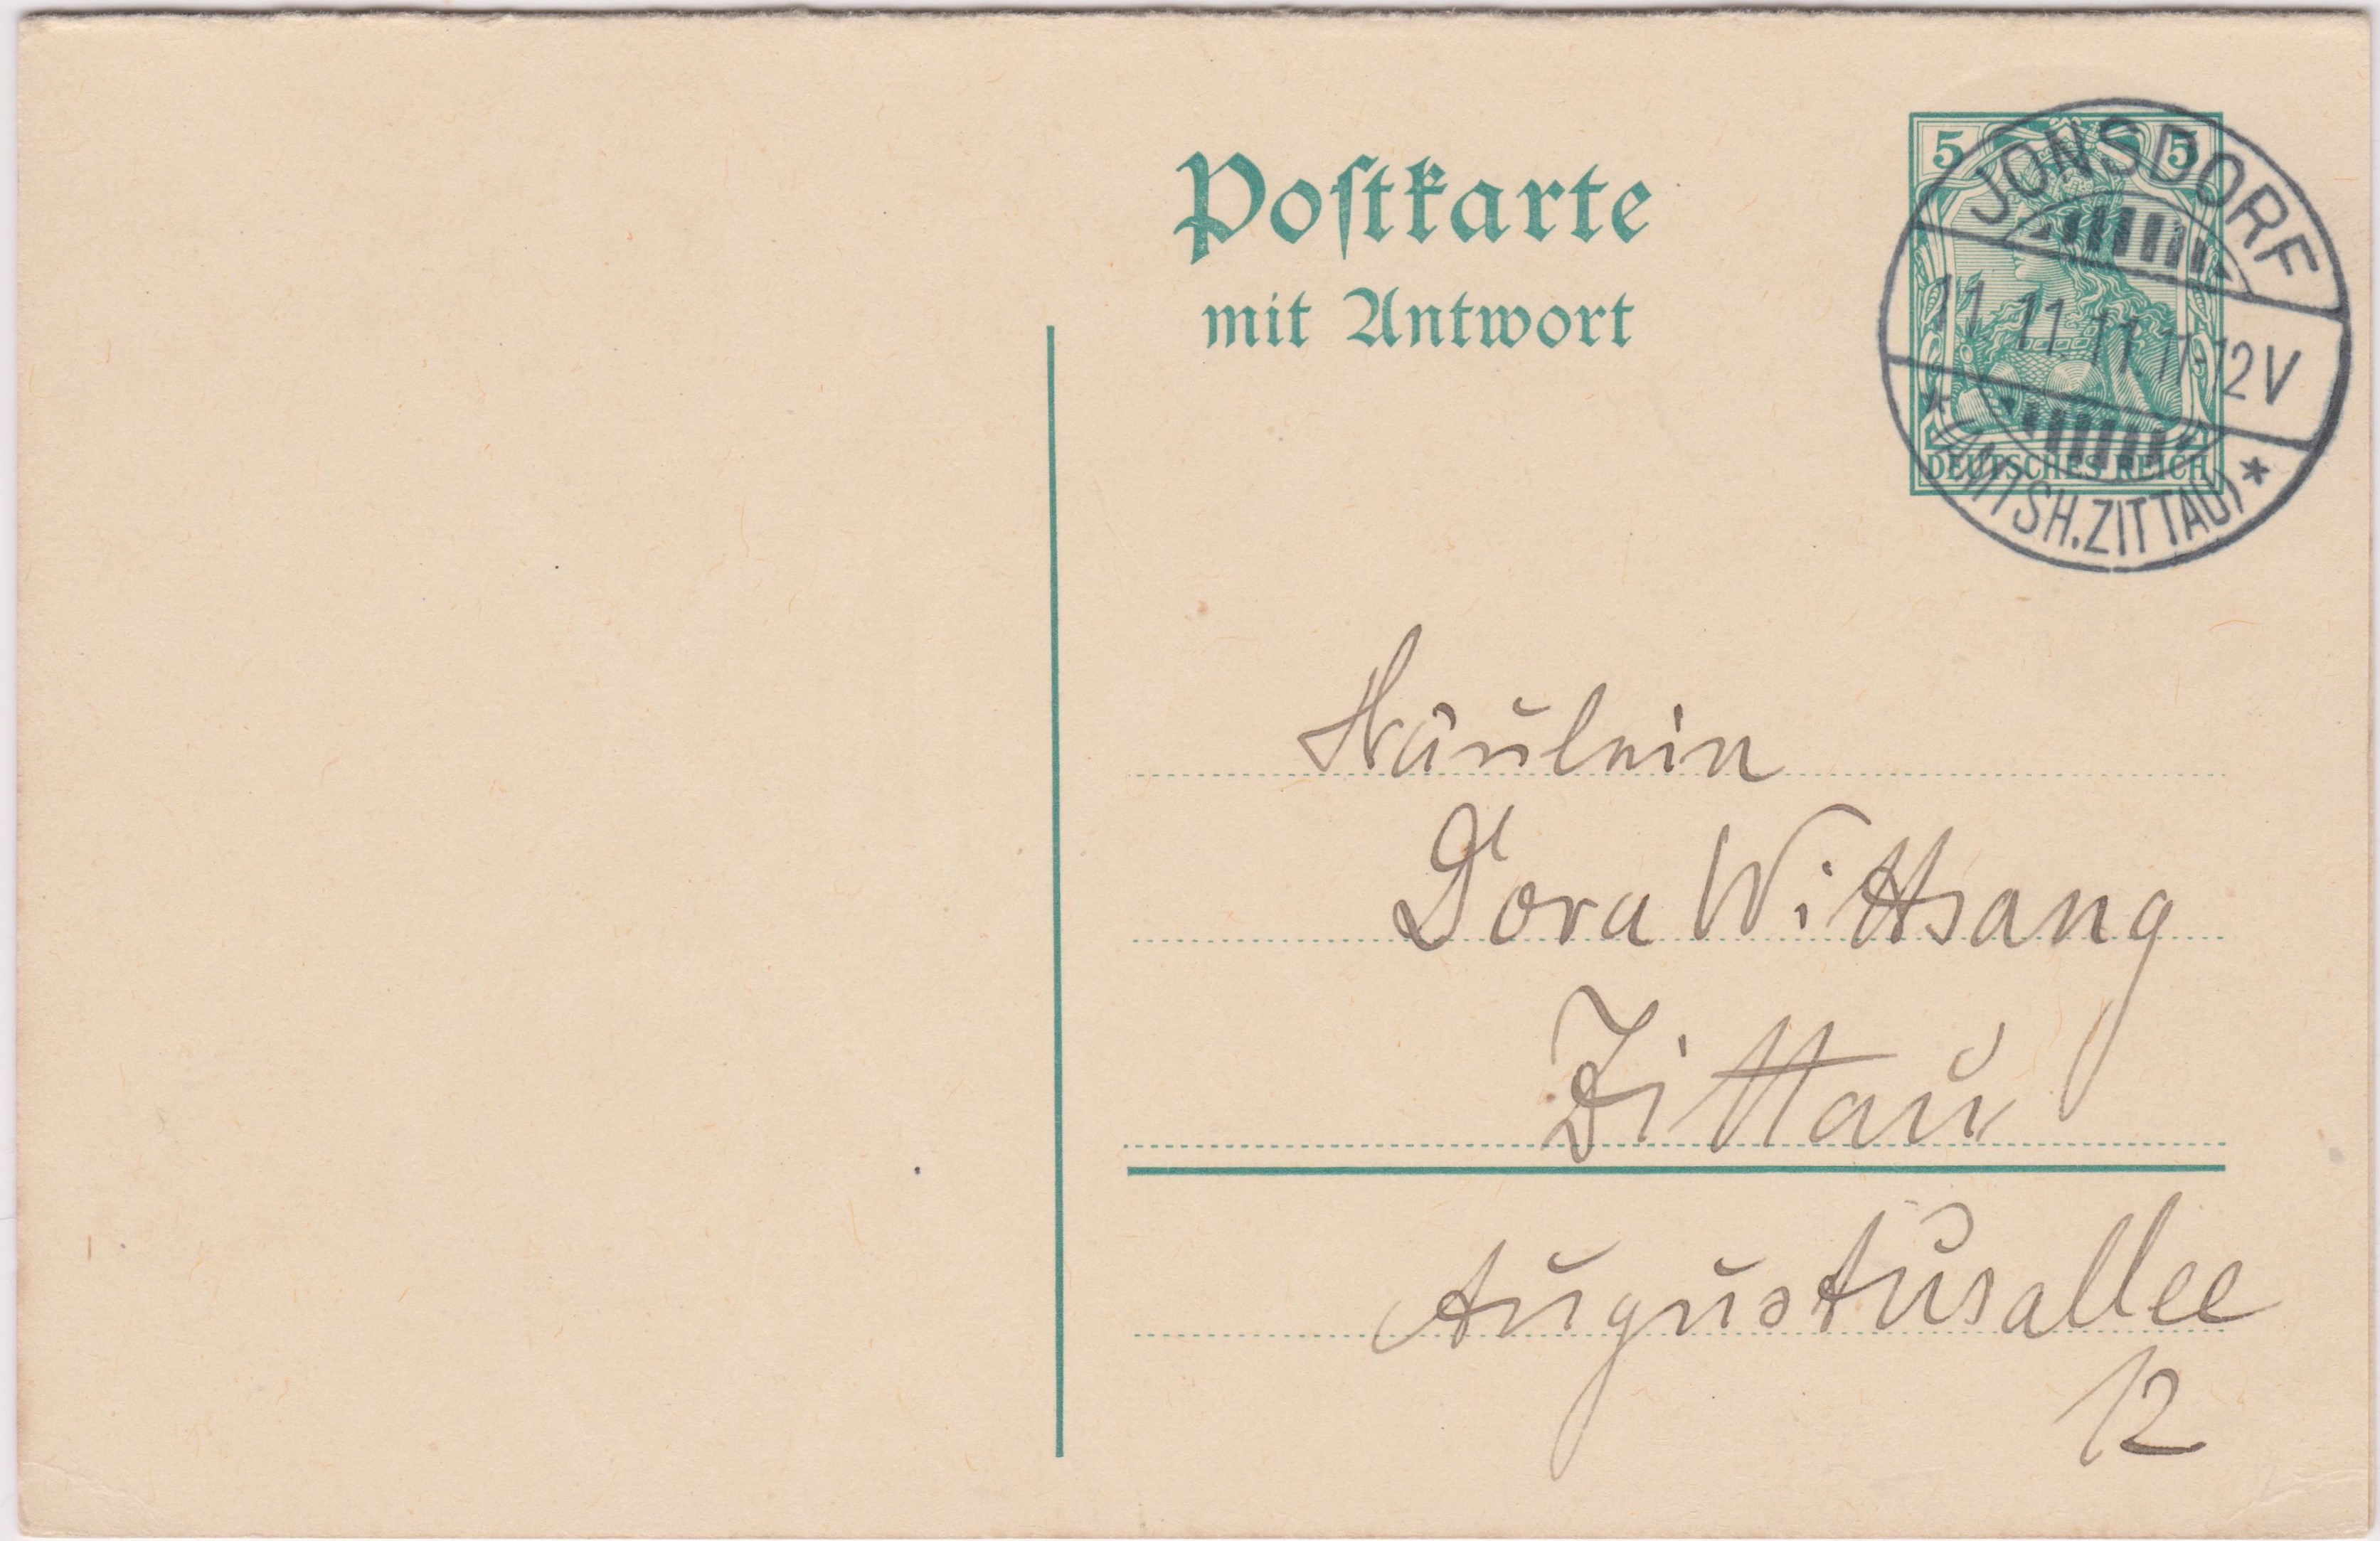 Postkarte
mit Antwort
5 5
DEUTSCHES REICH
JONSDORF
11.11.11.11-12V
* (AMTSH.ZITTAU) *
Fräulein
Dora Wittsang
Zittau
Augustusallee
12